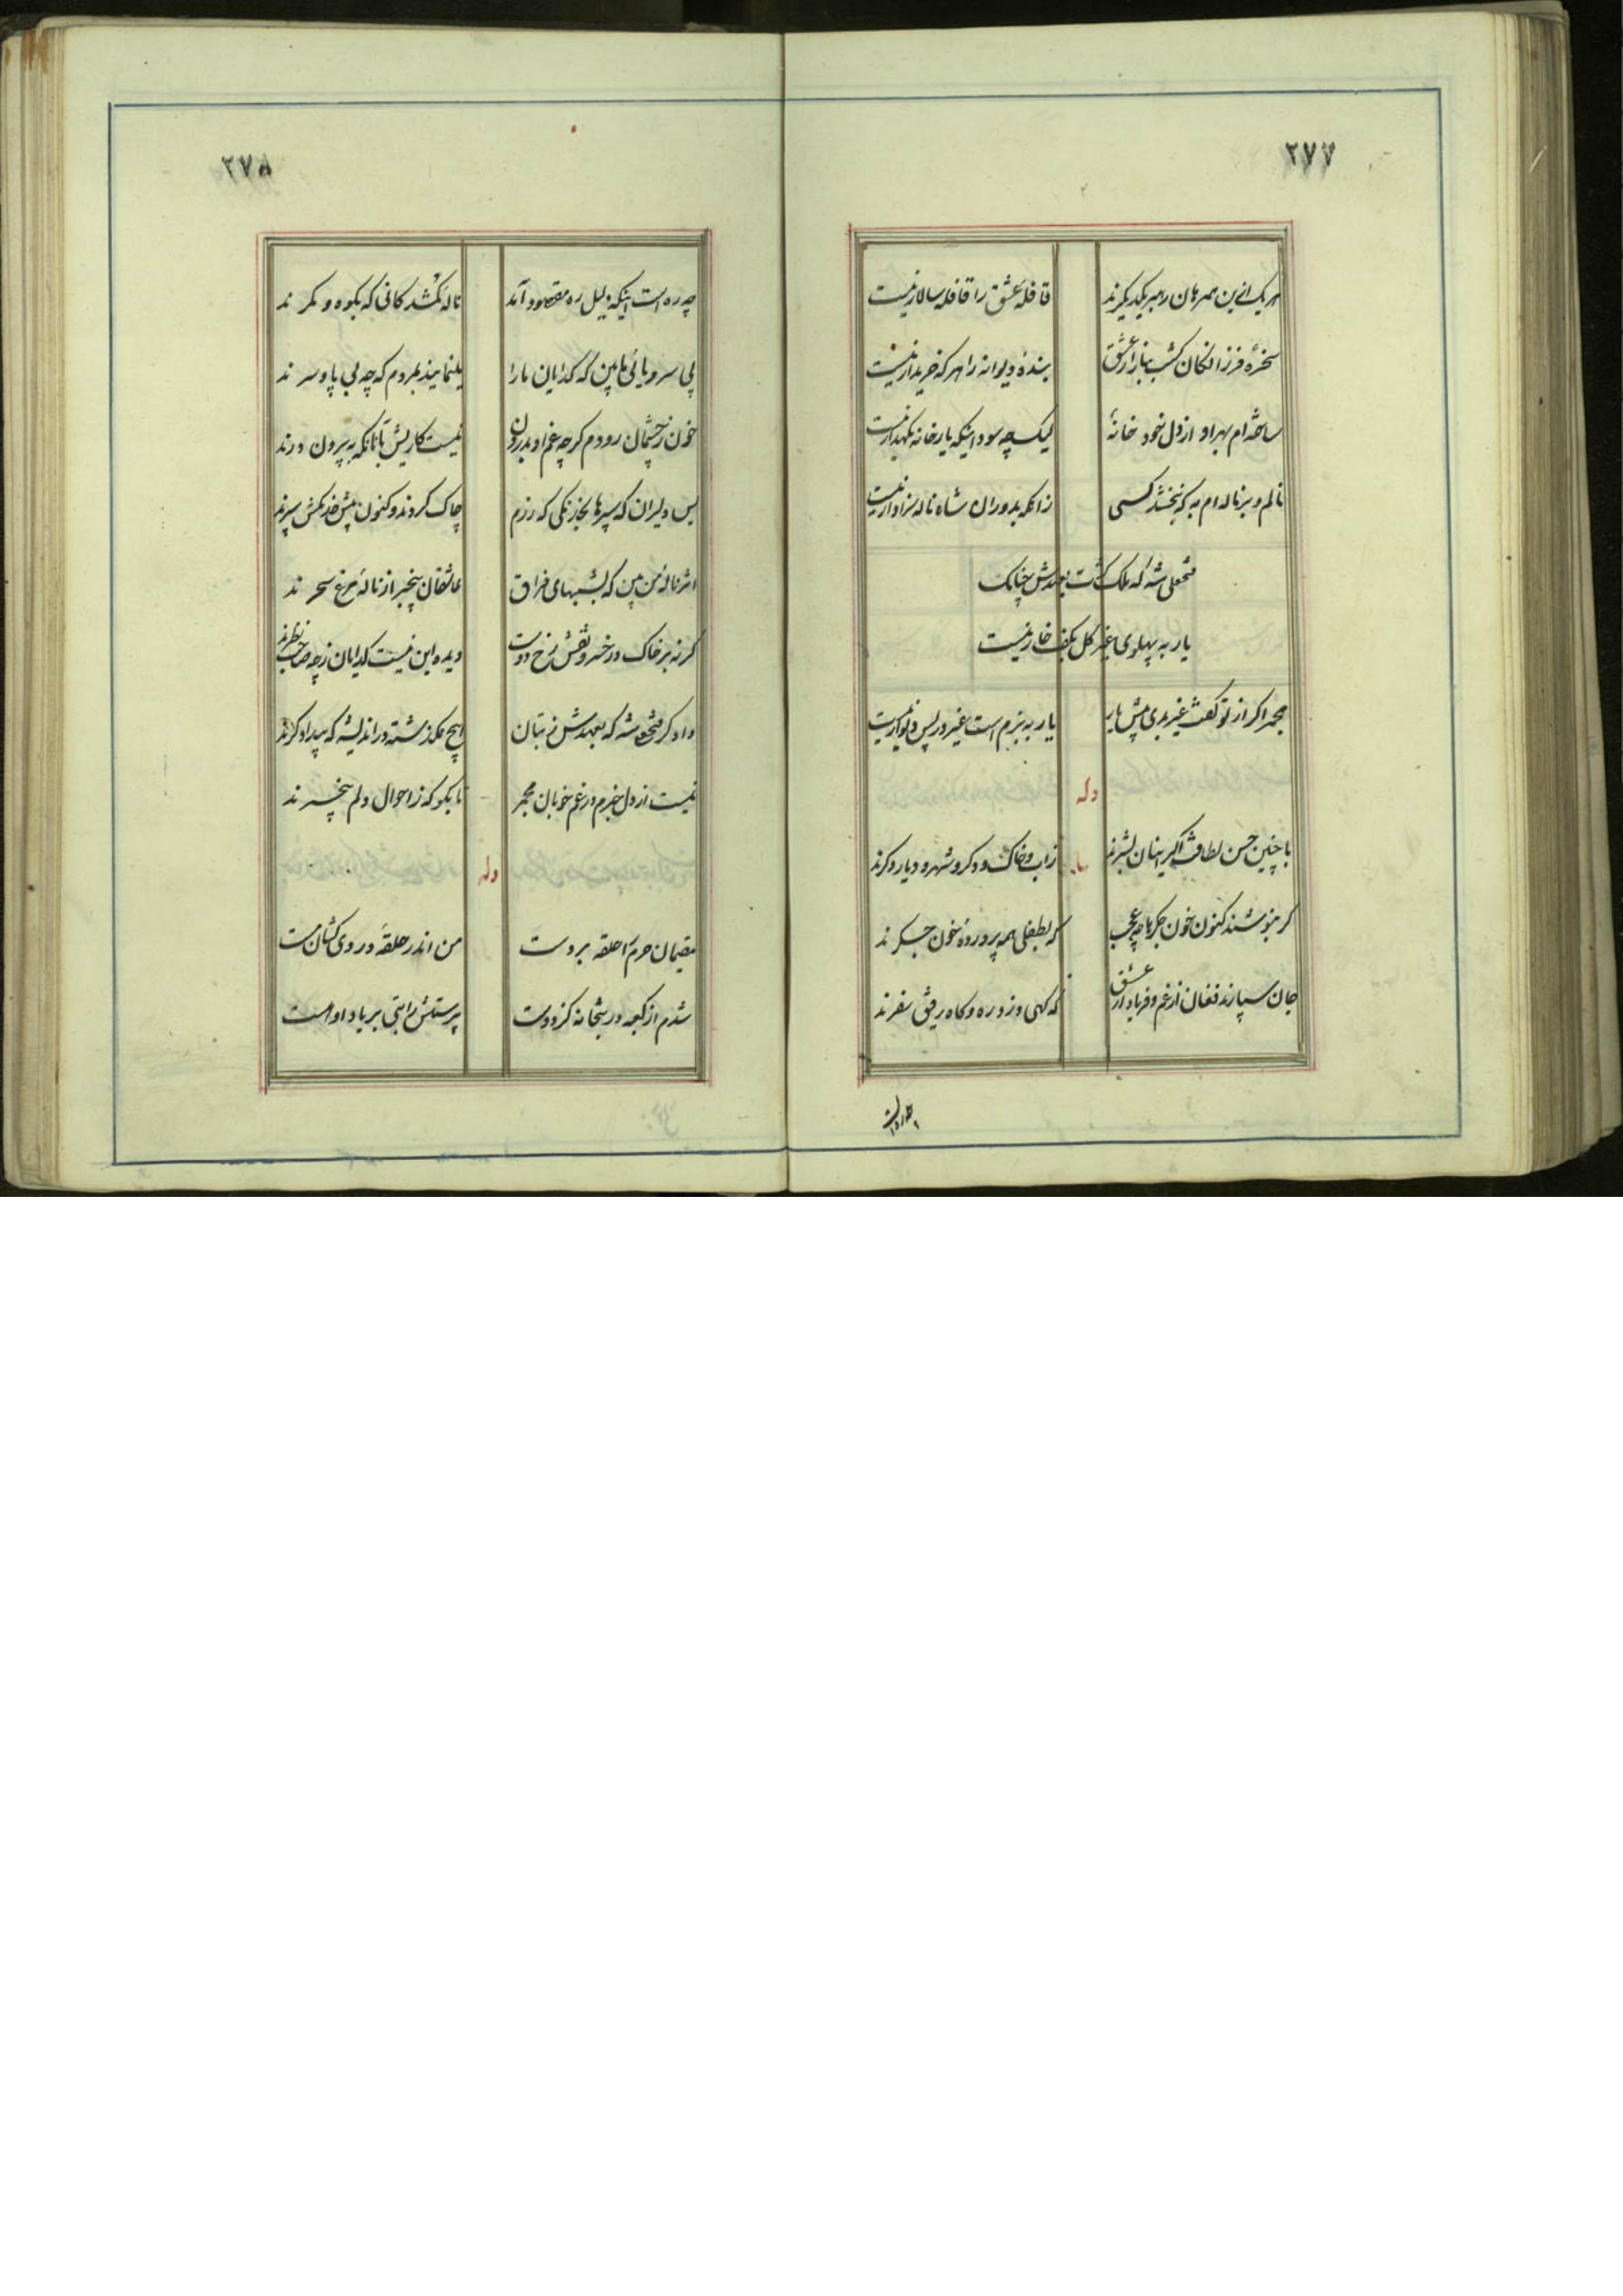 ۲۷۷
هریک ازین همرهان رهبر یکدیگرند
قافلهٔ عشق را قافله سالار نیست
سخرهٔ فرزانگان کشت ببازار عشق
بندهٔ دیوانه را هرکه خریدار نیست
ساخته‌ام بهر او از دل خود خانهٔ
لیک چه سود اینکه یار خانه نگهدار نیست
نالم و بر ناله‌ام به که نبخشد کسی
زانکه بدوران شاه ناله سزاوار نیست
فتحعلی شه که ملک کشت بعهدش چنانک
یار به پهلوی غیر گل بکف خار نیست
مجمر اگر از تو گفت غیر بدی پیش یار
یار به بزم است غیر در پس دیوار نیست
وله
با چنین حسن و لطافت اگر اینان بشرند
زاب و خاک دگر و شهر و دیار دگرند
گر بنوشند کنون خون جگرها چه عجب
که بطفلی همه پروردهٔ خون جگرند
جان سپارند فغان از غم و فریاد از عشق
که گهی دزد ره و گاه رفیق سفرند
چه ره است
۲۷۸
چه ره است اینکه دلیل ره مقصود آمد
ناله کمشدکانی که بکوه و کمرند
بی سر و پائی ما بین که گدایان ما را
بنمایند بمردم که چه بی پا و سرند
خون ز چشمان رودم گرچه غم او بدرون
نیست کاریش بآنانکه به بیرون درند
بس دلیران که سپرها بخدنگی که رزم
چاک کردند و کنون پیش خدنگش سپرند
اثر نالهٔ من بین که بشبهای فراق
عاشقان بیخبر از نالهٔ مرغ سحرند
گرنه بر خاک در خسرو نقش رخ دوست
دیده این نیست گدایان ز چه صاحب نظرند
دادگر فتحعلی شه که بعهدش ز بتان
هیچ نگذشته در اندیشه که بیدادگرند
نیست از دل خبرم در غم خوبان مجمر
تا بگو که ز احوال دلم بیخبرند
وله
مقیمان حرم را حلقه بر دست
من اندر حلقهٔ دردی کشان مست
شدم از کعبه در بتخانه کز دوست
پرستش را بتی بر یاد او هست